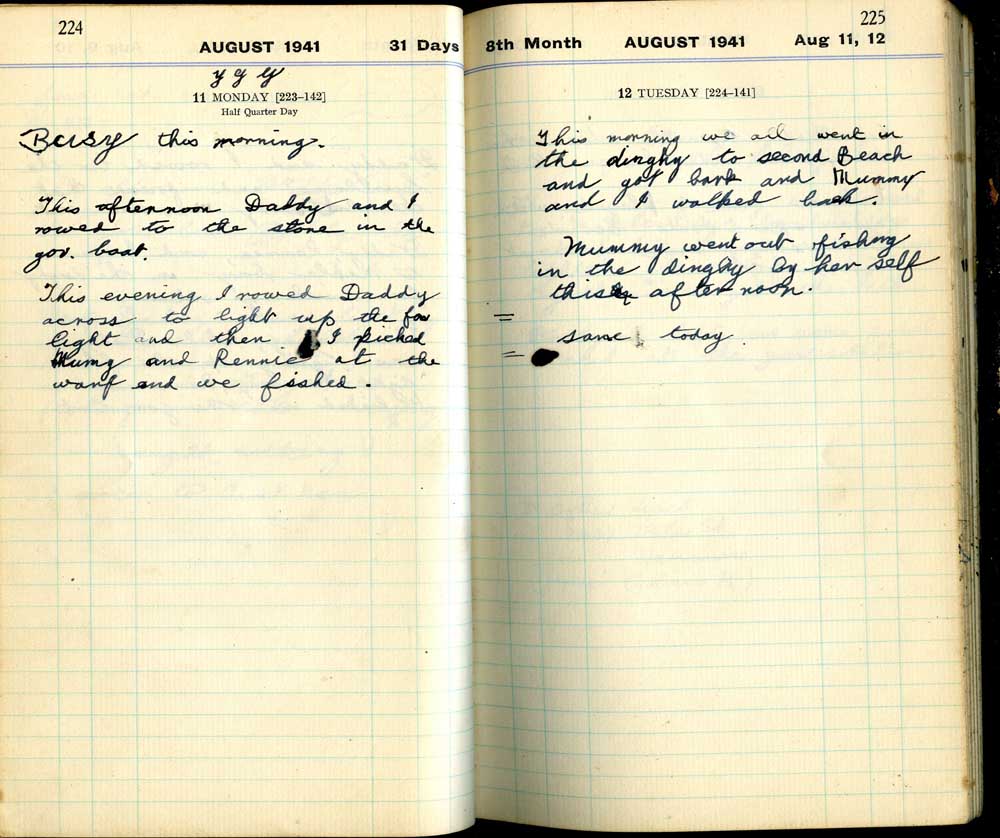 224
AUGUST 1941 31 Days
y g y
11 MONDAY [223–142]
Half Quarter Day
Busy this morning.
This afternoon Daddy and I
rowed to the store in the
gov. boat.
This evening I rowed Daddy
across to light up the
light and then I picked
Mumy and Rennie at the
warf and we fished.
225
8th Month AUGUST 1941 Aug 11, 12
12 TUESDAY [224–141]
This morning we all went in
the dinghy to second Beach
and got bark and Mummy
and I walked back.
Mummy went out fishing
in the dinghy by her self
this after noon.
= same today.
=